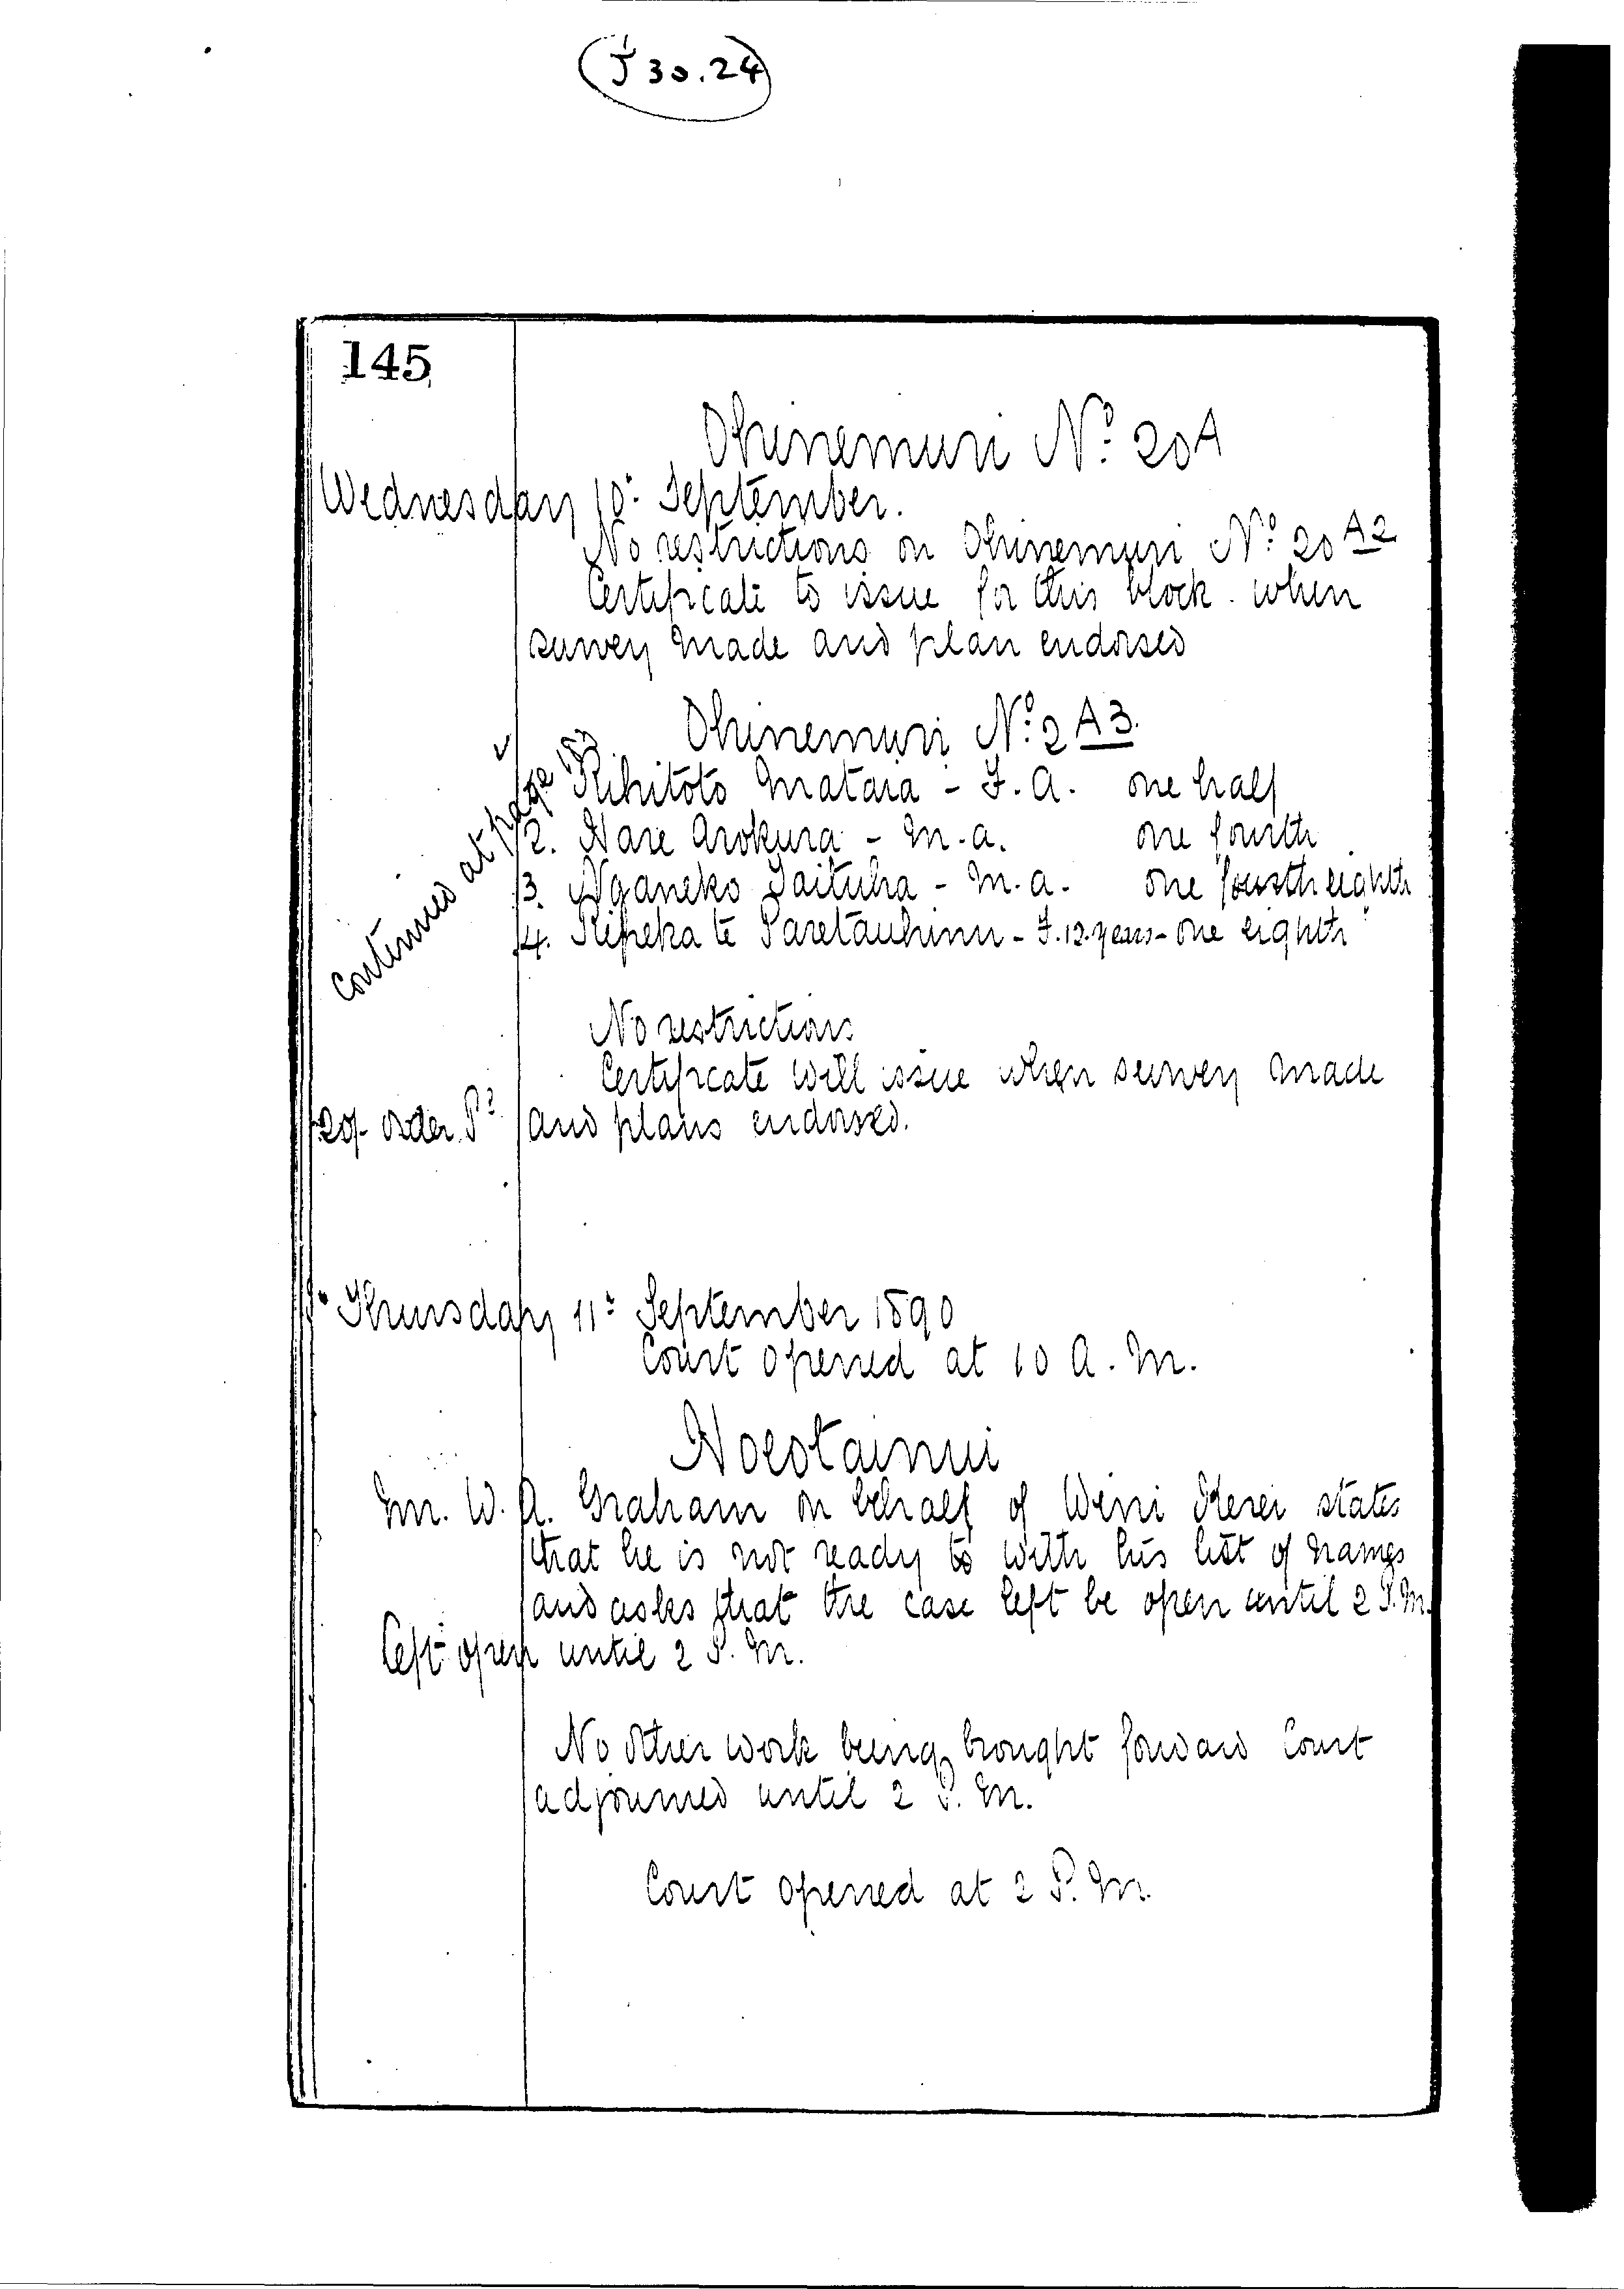 J 30.24
145
Ohinemuri No. 20A
Wednesday 10. September.
No restrictions on Ohinemuri No. 20 A2
Certificate to issue for this block. when
survey made and plan endorsed
Ohinemuri No. 2 A3.
Continued at page
Rihitoto Mataia - F. A. one half
2. Hare Arokura - M. A. one fourth
3. Nganeko Taituha - M. A. one fourth eighth
4. Ripeka te Paretauhinu - F. 12. years - one eighth
No restrictions
Certificate will issue when survey made
20/- order Pd and plans endorsed.
Thursday 11. September 1890
Court opened at 10 A. M.
Hoeotainui
Mr. W. A. Graham on behalf of Wini Kerei states
that he is not ready to with his list of names
and asks that the case left be open until 2 P.M.
left open until 2 P. M.
No other work being brought forward Court
adjourned until 2 P. M.
Court opened at 2 P. M.